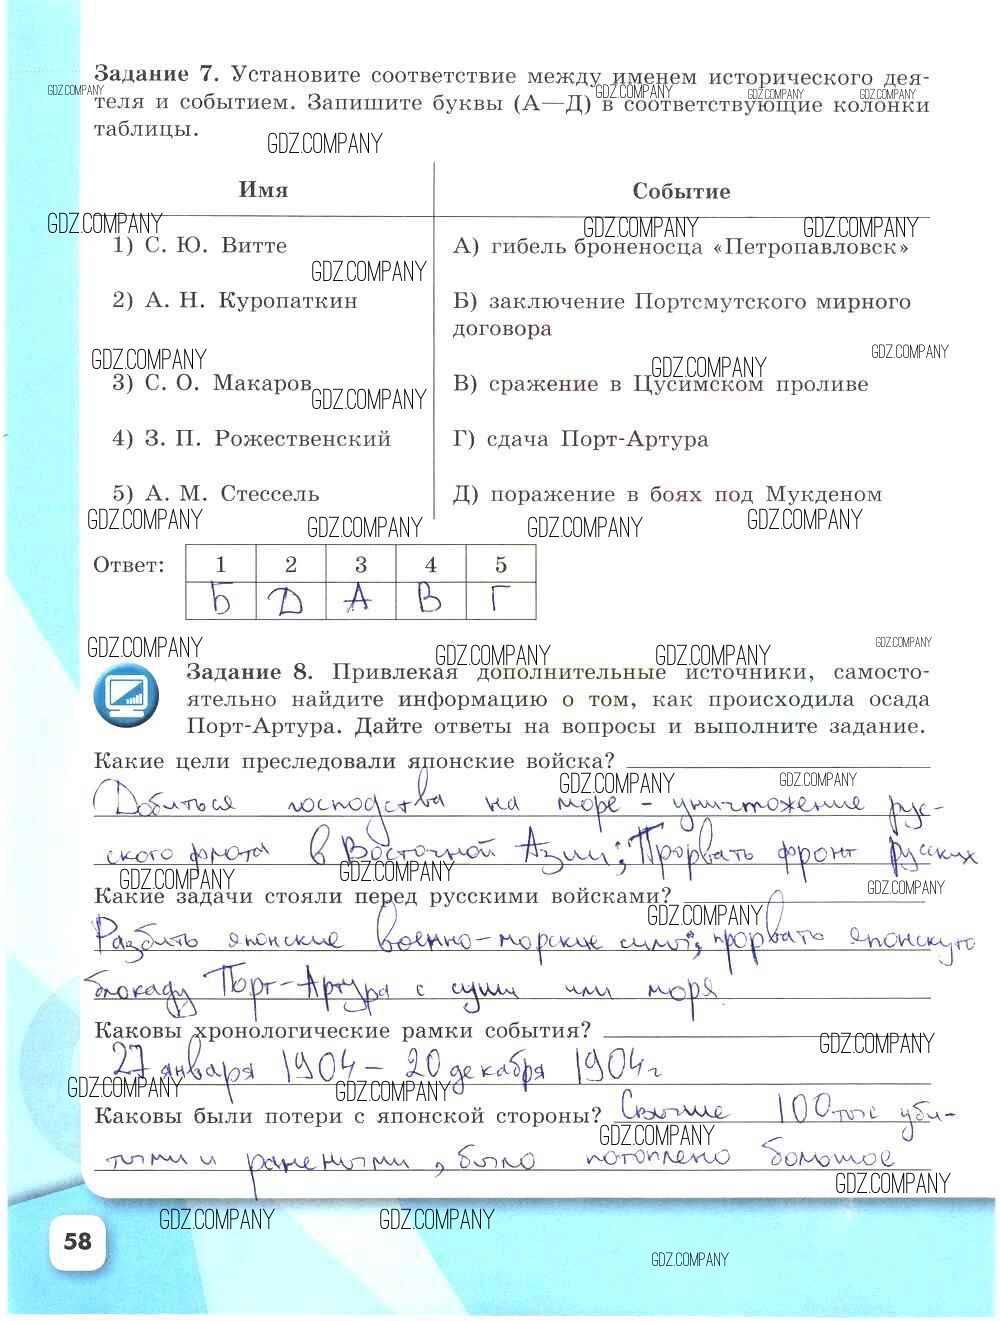 Задание 7. Установите соответствие между именем исторического дея-
теля и событием. Запишите буквы (А—Д) в соответствующие колонки
таблицы.
Имя
Событие
1) С. Ю. Витте
А) гибель броненосца «Петропавловск»
2) А. Н. Куропаткин
Б) заключение Портсмутского мирного
договора
3) С. О. Макаров
В) сражение в Цусимском проливе
4) З. П. Рожественский
Г) сдача Порт-Артура
5) А. М. Стессель
Д) поражение в боях под Мукденом
Ответ: 1 2 3 4 5
Б Д А В Г
Задание 8. Привлекая дополнительные источники, самосто-
ятельно найдите информацию о том, как происходила осада
Порт-Артура. Дайте ответы на вопросы и выполните задание.
Какие цели преследовали японские войска?
Добиться господства на море - уничтожение рус-
ского флота в Восточной Азии; Прорвать фронт русских
Какие задачи стояли перед русскими войсками?
Разбить японские военно-морские силы; прорвать японскую
блокаду Порт-Артура с суши или моря
Каковы хронологические рамки события?
27 января 1904 - 20 декабря 1904 г
Каковы были потери с японской стороны? Свыше 100 тыс уби-
тыми и ранеными, было потоплено большое
58
GDZ.COMPANY